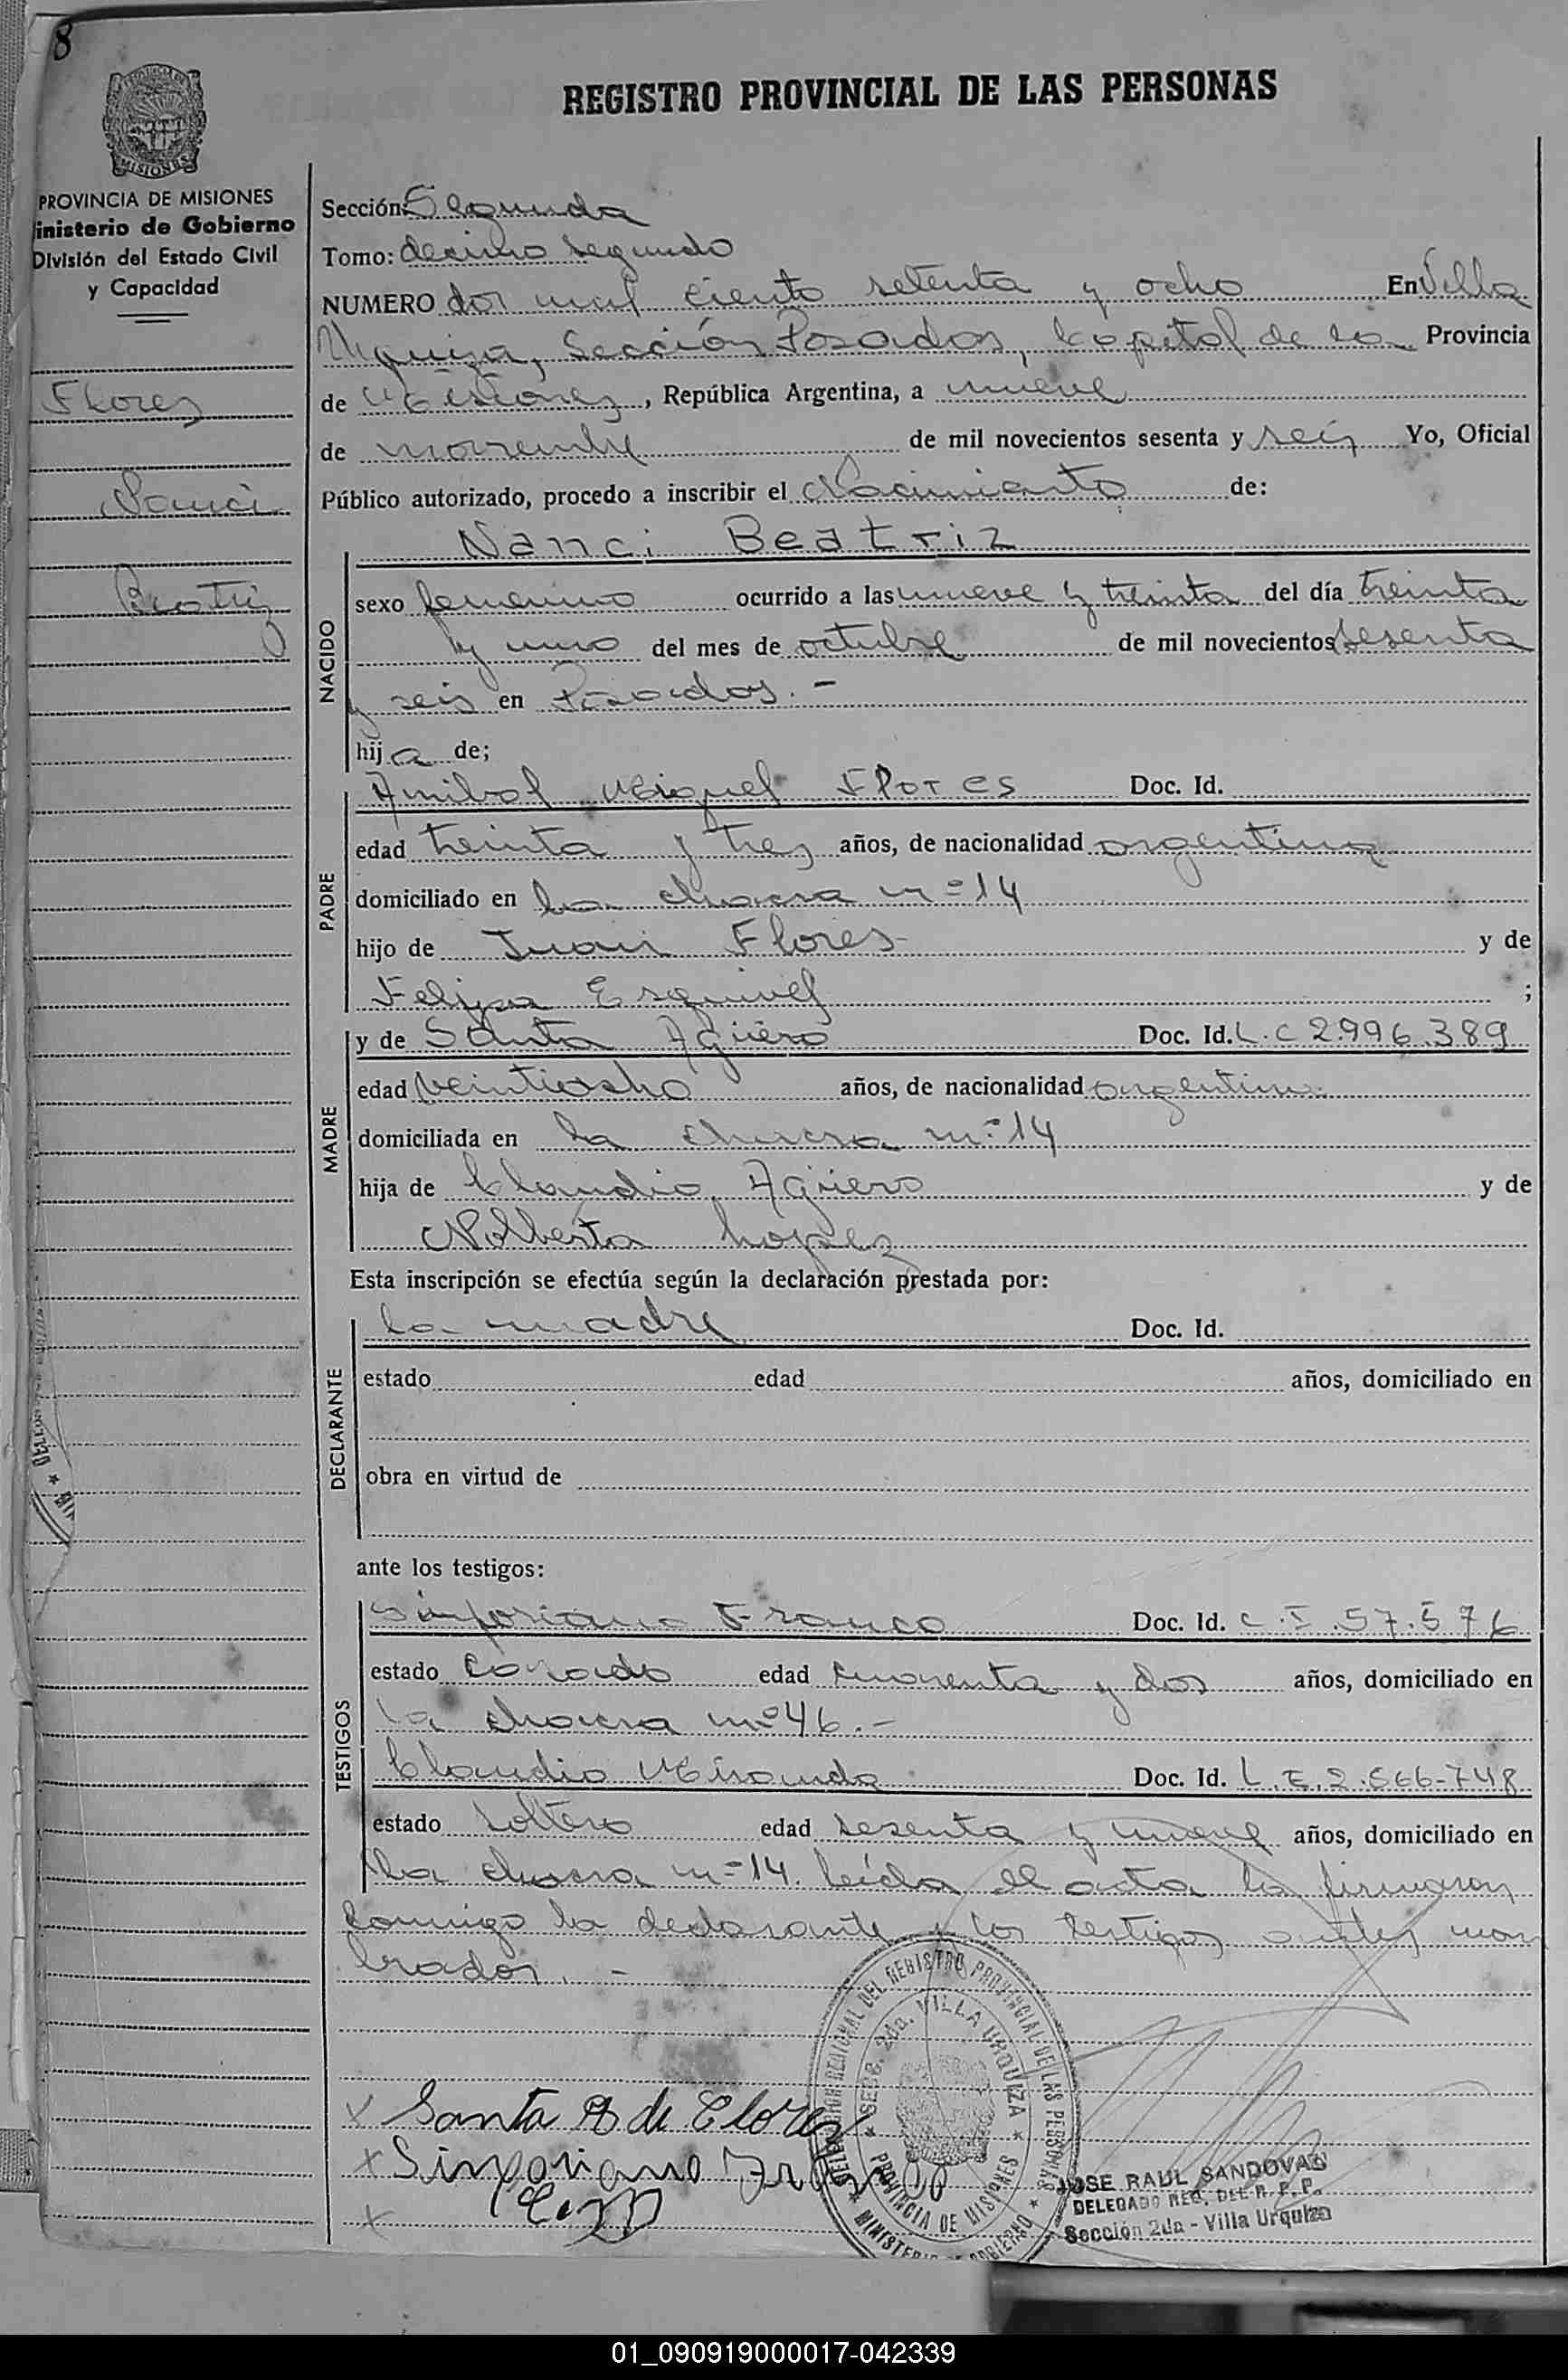 8
REGISTRO PROVINCIAL DE LAS PERSONAS
MISIONES
PROVINCIA DE MISIONES
inisterio de Gobierno
División del Estado Civil
y Capacidad
Flores
Nanci
Beatriz
Sección: Segunda
Tomo: decimo segundo
NUMERO dos mil ciento setenta y ocho En Villa
Urquiza, Sección Posadas, Capital de la Provincia
de Misiones, República Argentina, a nueve
de noviembre de mil novecientos sesenta y seis Yo, Oficial
Público autorizado, procedo a inscribir el Nacimiento de:
Nanci Beatriz
NACIDO
sexo femenino ocurrido a las nueve y treinta del día treinta
y uno del mes de octubre de mil novecientos sesenta
y seis en Posadas. -
hija de;
PADRE
Anibal Miguel Flores Doc. Id.
edad treinta y tres años, de nacionalidad argentina
domiciliado en la chacra nº 14
hijo de Juan Flores y de
Felipa Esquivel ;
MADRE
y de Santa Agüero Doc. Id. L.C 2.996.389
edad veintiocho años, de nacionalidad argentina
domiciliada en la chacra nº 14
hija de Claudio Agüero y de
Nolberta Lopez
Esta inscripción se efectúa según la declaración prestada por:
DECLARANTE
la madre Doc. Id.
estado edad años, domiciliado en
obra en virtud de
ante los testigos:
TESTIGOS
Sinforiano Franco Doc. Id. C.I. 57.576
estado casado edad cuarenta y dos años, domiciliado en
la chacra nº 46. -
Claudio Miranda Doc. Id. L.E. 2.566-748
estado soltero edad sesenta y nueve años, domiciliado en
la chacra nº 14. leída el acta la firmaron
conmigo la declarante y los testigos antes nom
brados. -
DEL REGISTRO PROVINCIAL DE LAS PERSONAS
SECC. 2da. VILLA URQUIZA
PROVINCIA DE MISIONES
MINISTERIO DE GOBIERNO
x Santa A de Flores
x Sinforiano Franco
x
JOSE RAUL SANDOVAL
DELEGADO REG. DEL R. P. P.
Sección 2da - Villa Urquiza
01_090919000017-042339